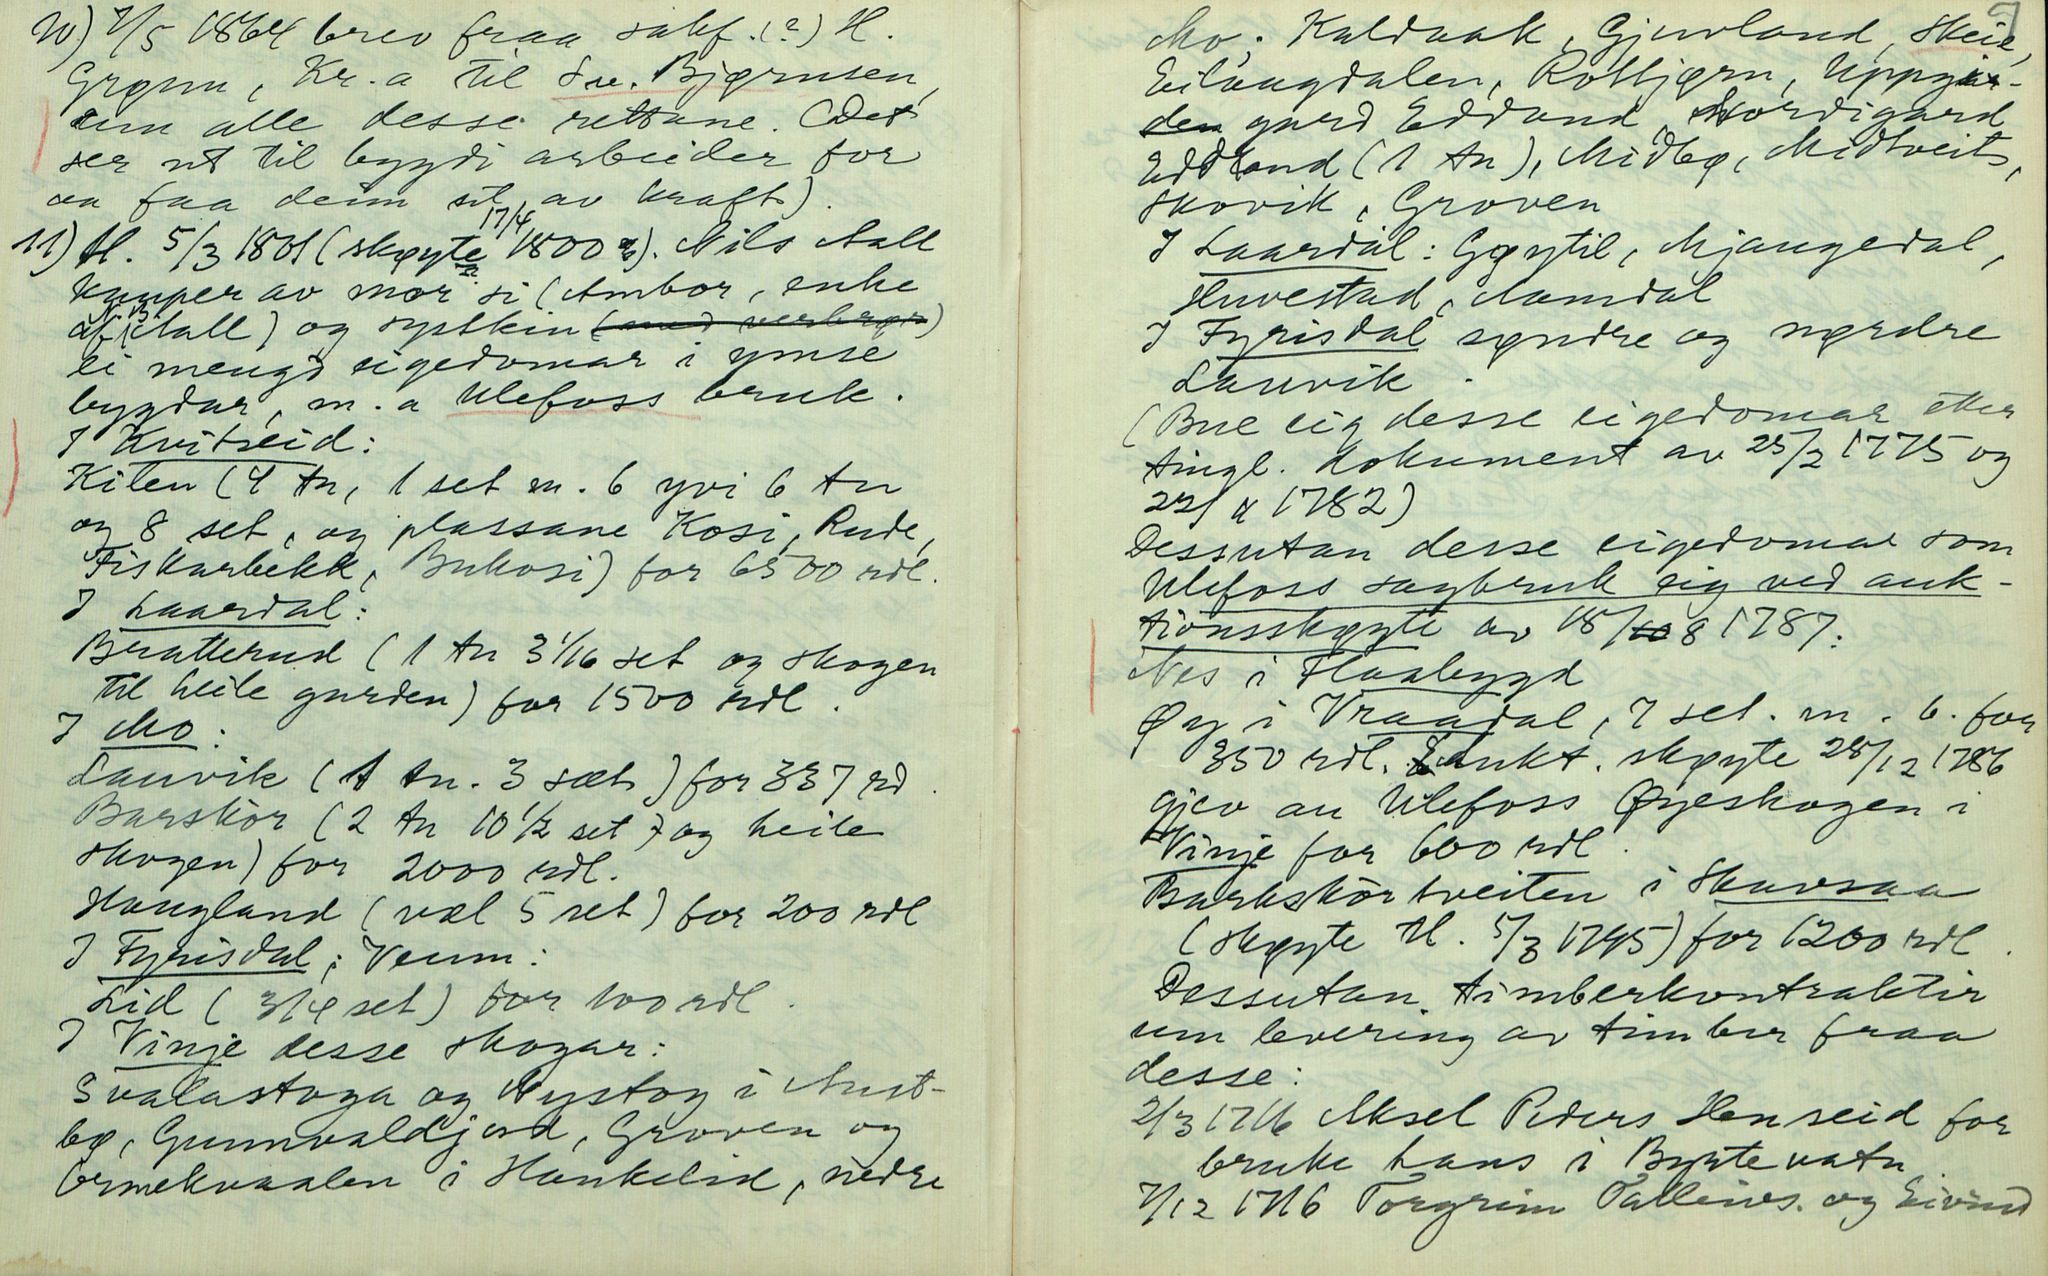 10) 7/5 1864 brev fraa sakf. (?) H.
Grønn, Kr.a til Sv. Bjørnsen,
um alle desse rettane. (Det
ser ut til bygdi arbeider for
aa faa deim ut av kraft).
11) Tl. 5/3 1801 (skøyte 17/4 1800). Nils Aall
kauper av mor si (Ambor, enke
af N. Aall) og systkin
ei mengd eigedomar i ymse
bygdar, m.a Ulefoss bruk.
I Kvitseid:
Kilen (4 tn, 1 set m. 6 yvi 6 tn
og 8 set, og plassane Kosi, Rude,
Fiskarbekk, Bukosi) for 6500 rdl.
I Laardal:
Bratterud (1 tn 3 1/16 set og skogen
til heile garden) for 1500 rdl.
I Mo:
Lauvik (1 tn. 3 sæt) for 337 rd.
Barskor (2 tn 10 1/2 set) og heile
skogen) for 2000 rdl.
Haugland (vel 5 set) for 200 rdl
I Fyrisdal; Veum:
Lid (3/4 set) for 100 rdl.
I Vinje desse skogar:
Svalastoga og Nystog i Aust-
bø, Gunnvaldjord, Groven og
Ormekvaalen i Haukelid, nedre
7
Mo. Kaldaak, Gjuvland, Skeie,
Eilaugdalen, Rotbjørn, Uppgar-
den gard Edland Nordigard
Eddland (1 tn), Midbø, Midtveit,
Skovik, Groven
I Laardal: Gøytil, Mjaugedal,
Huvestad, Aamdal
I Fyrisdal syndre og nørdre
Lauvik.
(Bue eig desse eigedomar etter
tingl. dokument av 25/2 1775 og
22/ 1782)
Dessutan desse eigedomar som
Ulefoss sagbruk eig ved auk-
tionsskøyte av 18/8 1787:
Nes i Flaabygd
Øy i Vraadal, 7 set. m. 6. for
350 rdl. aukt. skøyte 28/12 1786
gjev au Ulefoss Øyeskogen i
Vinje for 600 rdl.
Barkskortveiten i Skavsaa
(skøyte tl. 5/3 1795) for 1200 rdl.
Dessutan timberkontraktir
um levering av timber fraa
desse:
2/3 1716 Aksel Peders Henseid for
bruke hans i Byrtevatn.
7/12 1716 Torgrim Talleivs. og Eivind